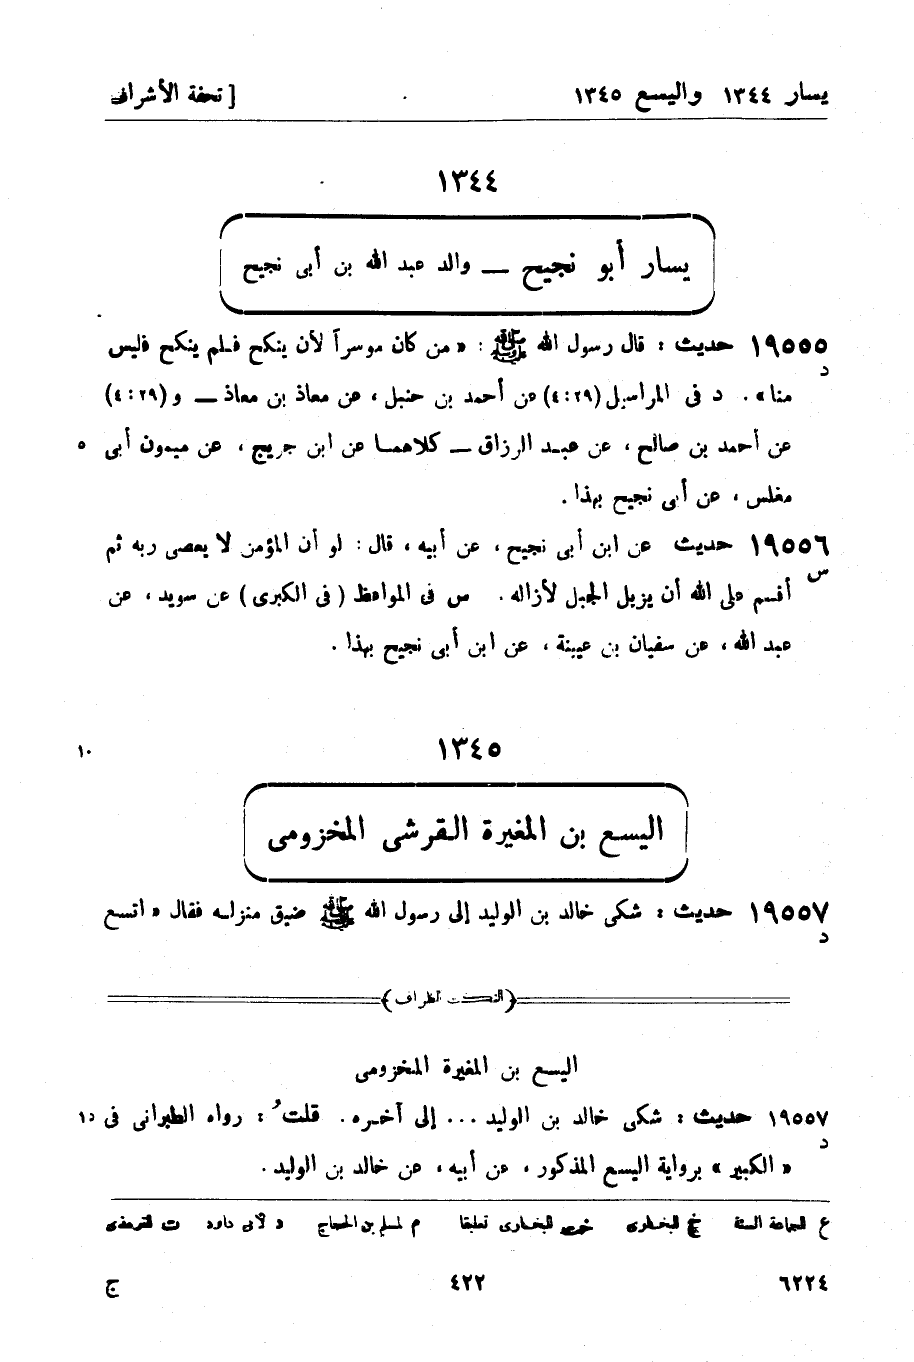 يسار ١٣٤٤ واليسع ١٣٤٥ [ تحفة الأشراف
١٣٤٤
يسار أبو نجيح — والد عبد الله بن أبى نجيح
١٩٥٥٥ حديث : قال رسول الله ﷺ : « من كان موسراً لأن ينكح فـلم ينكح فليس
د
منا » . د فى المراسيل (٤:٢٩) عن أحمد بن حنبل ، عن معاذ بن معاذ — و (٤:٢٩)
عن أحمد بن صالح ، عن عبـد الرزاق — كلاهمـا عن ابن جريج ، عن ميمون أبى ٥
مغلس ، عن أبى نجيح بهذا .
١٩٥٥٦ حديث عن ابن أبى نجيح ، عن أبيه ، قال : لو أن المؤمن لا يعصى ربه ثم
س
أقسم على الله أن يزيل الجبل لأزاله . س فى المواعظ ( فى الكبرى ) عن سويد ، عن
عبد الله ، عن سفيان بن عيينة ، عن ابن أبى نجيح بهذا .
١٣٤٥
١٠
اليسع بن المغيرة القرشى المخزومى
١٩٥٥٧ حديث : شكى خالد بن الوليد إلى رسول الله ﷺ ضيق منزلـه فقال « اتسع
د
( النكـت الظراف )
اليسع بن المغيرة المخزومى
١٩٥٥٧ حديث : شكى خالد بن الوليد ... إلى آخـره . قلتُ : رواه الطبرانى فى ١٥
د
« الكبير » برواية اليسع المذكور ، عن أبيه ، عن خالد بن الوليد .
ع للجماعة الستة خ للبخـارى خت للبخـارى تعليقا م لمسلم بن الحجاج د لأبى داود ت للترمذى
٦٢٢٤ ٤٢٢ ج